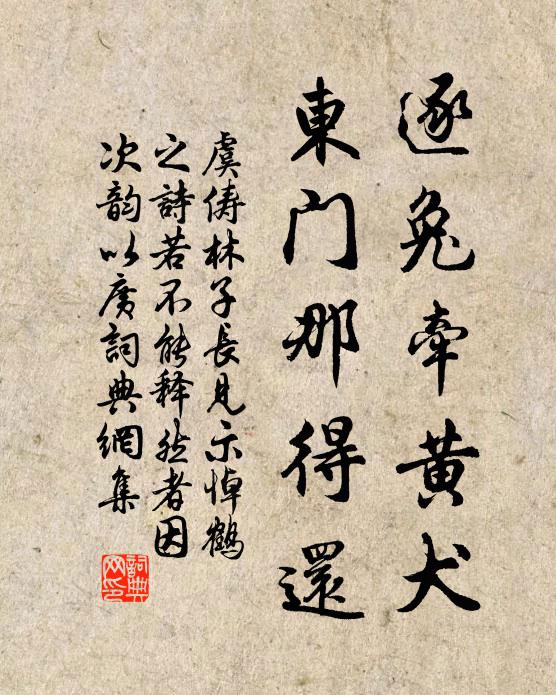 逐兔牽黄犬
東门那得還
虞俦林子長見示悼鶴
之詩若不能释然者因
次韵以廣詞典網集
詞典网印